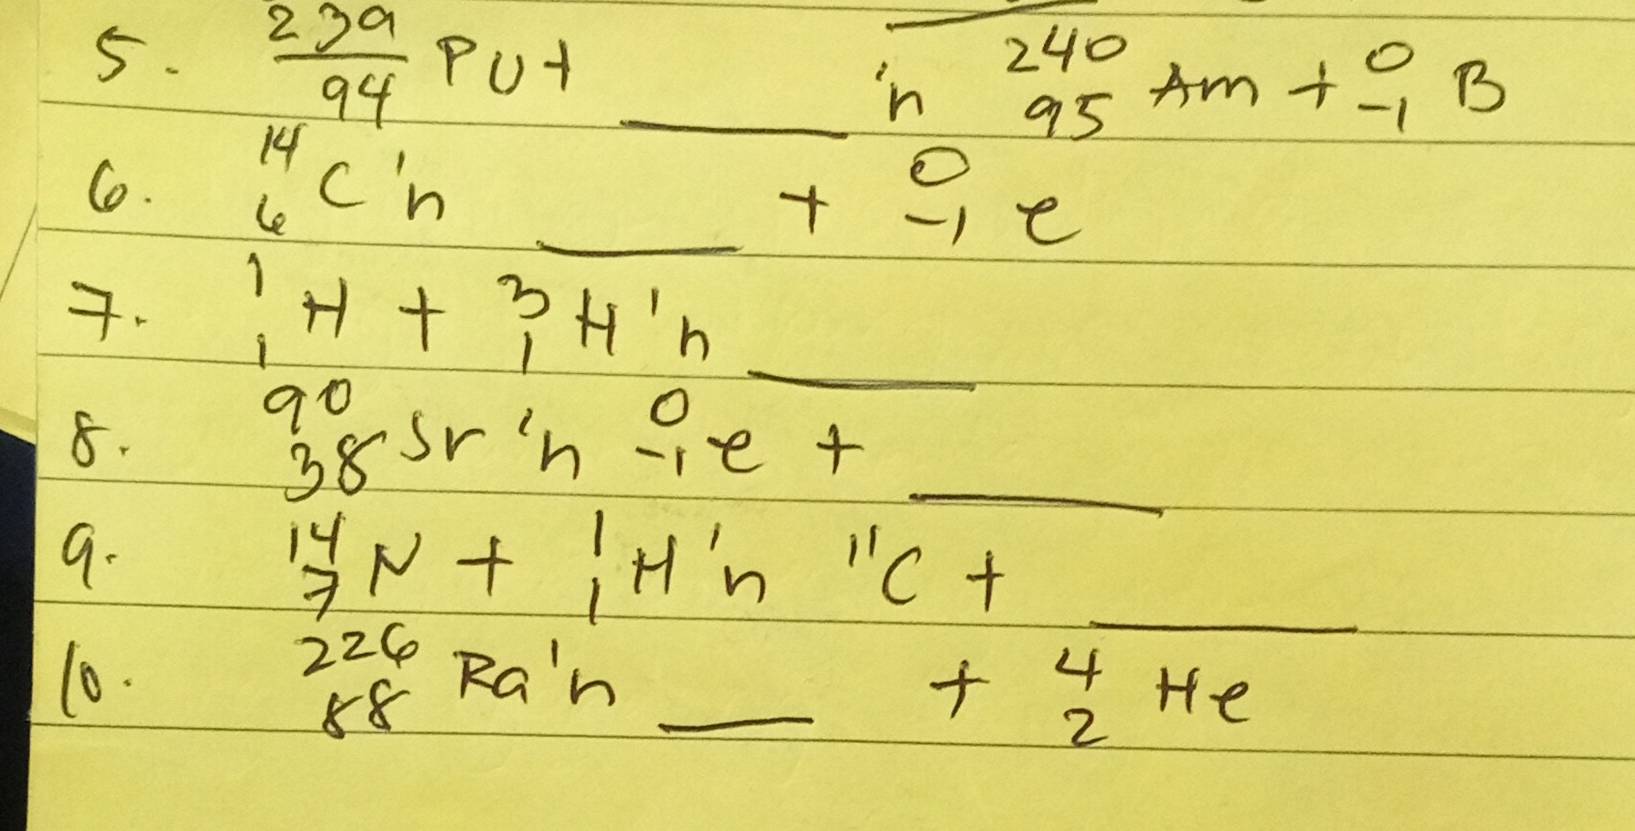 5. 239/94 Pu + ____ 'n 240 95 Am + 0 -1 B
6. 14 6 C 'n ____ + 0 -1 e
7. 1 1 H + 3 1 H 'n ____
8. 90 38 Sr 'n 0 -1 e + ____
9. 14 7 N + 1 1 H 'n 11 C + ____
10. 226 88 Ra 'n ____ + 4 2 He